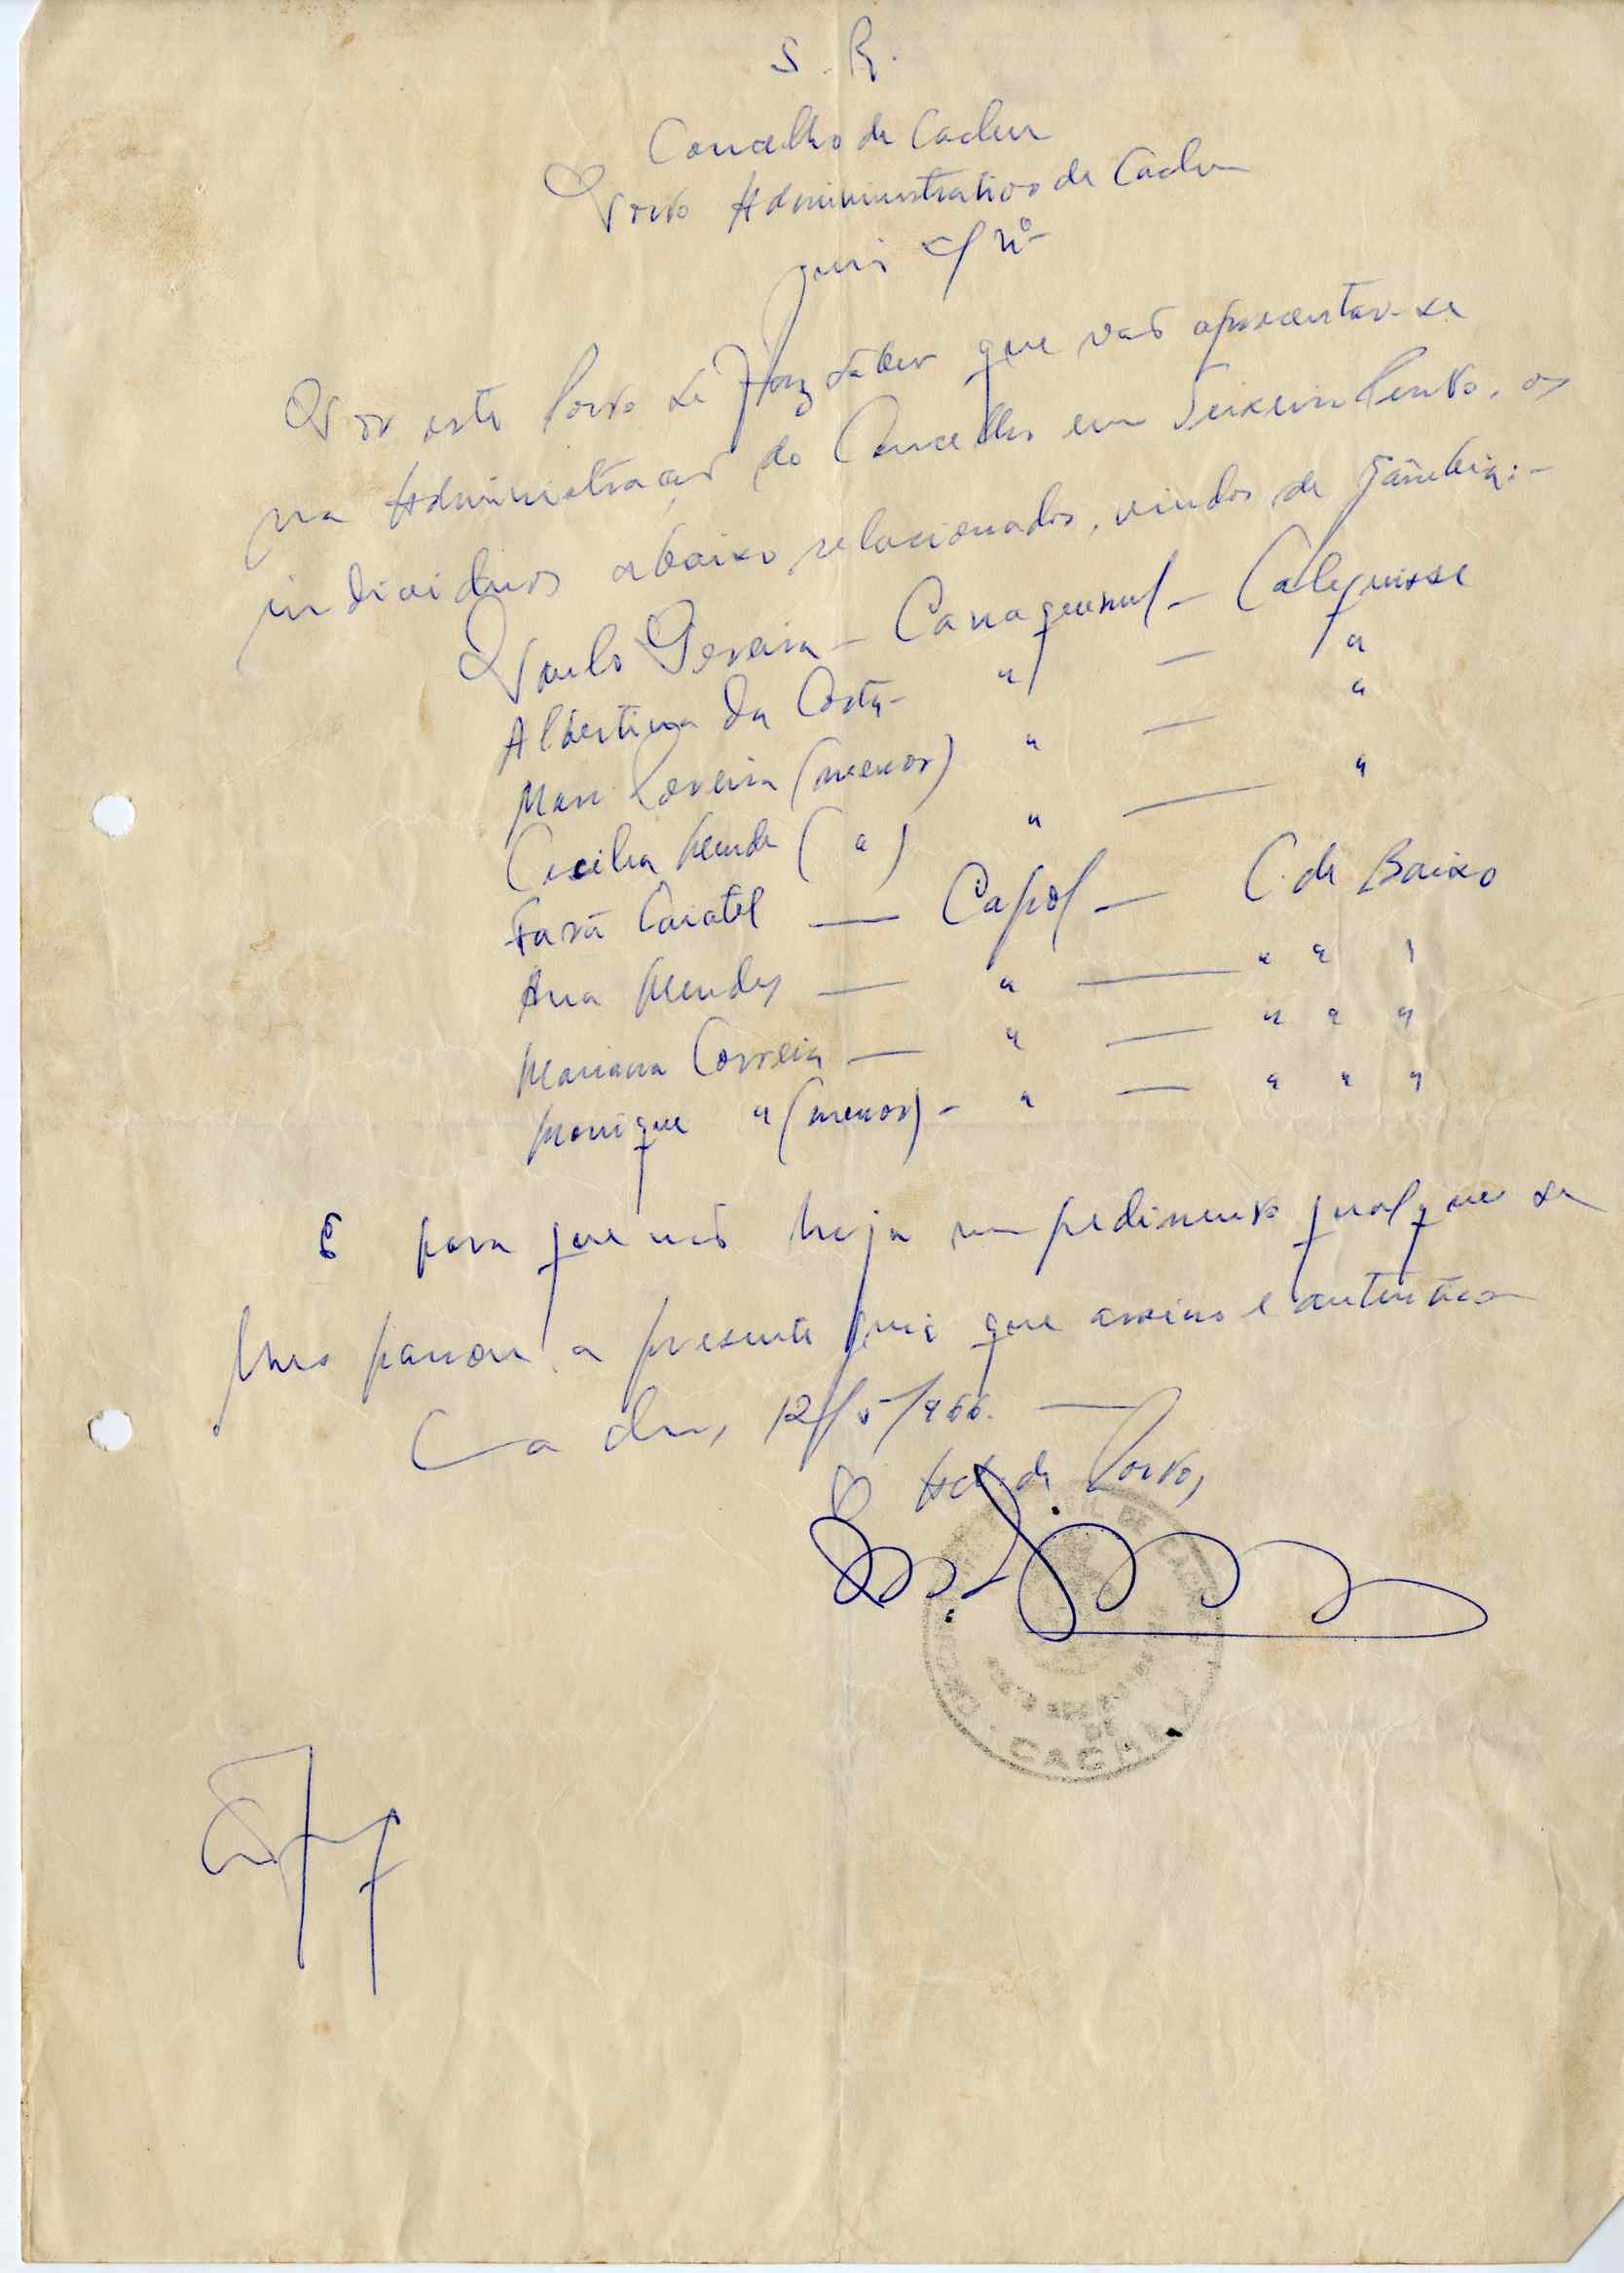 S. R.
Concelho de Cacheu
Posto Administrativo de Cacheu
Guia s/nº
Por este Posto se faz saber que vão apresentar-se
na Administração do Concelho em Teixeira Pinto, os
individuos abaixo relacionados, vindos de Gâmbia:-
Paulo Pereira - - Calequisse
Albertina da Costa - " - "
Mari Pereira (menor) " - "
Cecilia Mendes ( " ) " - "
Cariatel - Capol - C. de Baixo
Ana Mendes - " - " " "
Mariana Correia - " - " " "
Monique " (menor) - " - " " "
E para que não haja impedimento qualquer se
lhes passou a presente guia que assino e autentico
Cacheu, 12/5/966. -
O Ad. de Posto,
DE CACHEU